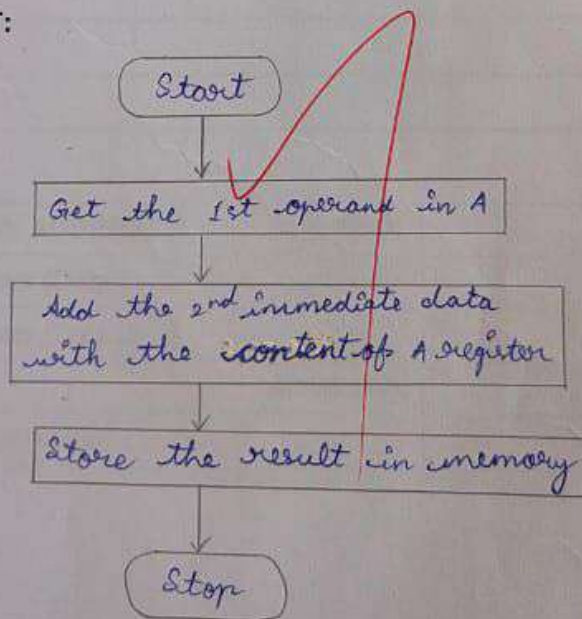 :
Start
Get the 1st operand in A
Add the 2nd immediate data
with the content of A register
Store the result in memory
Stop